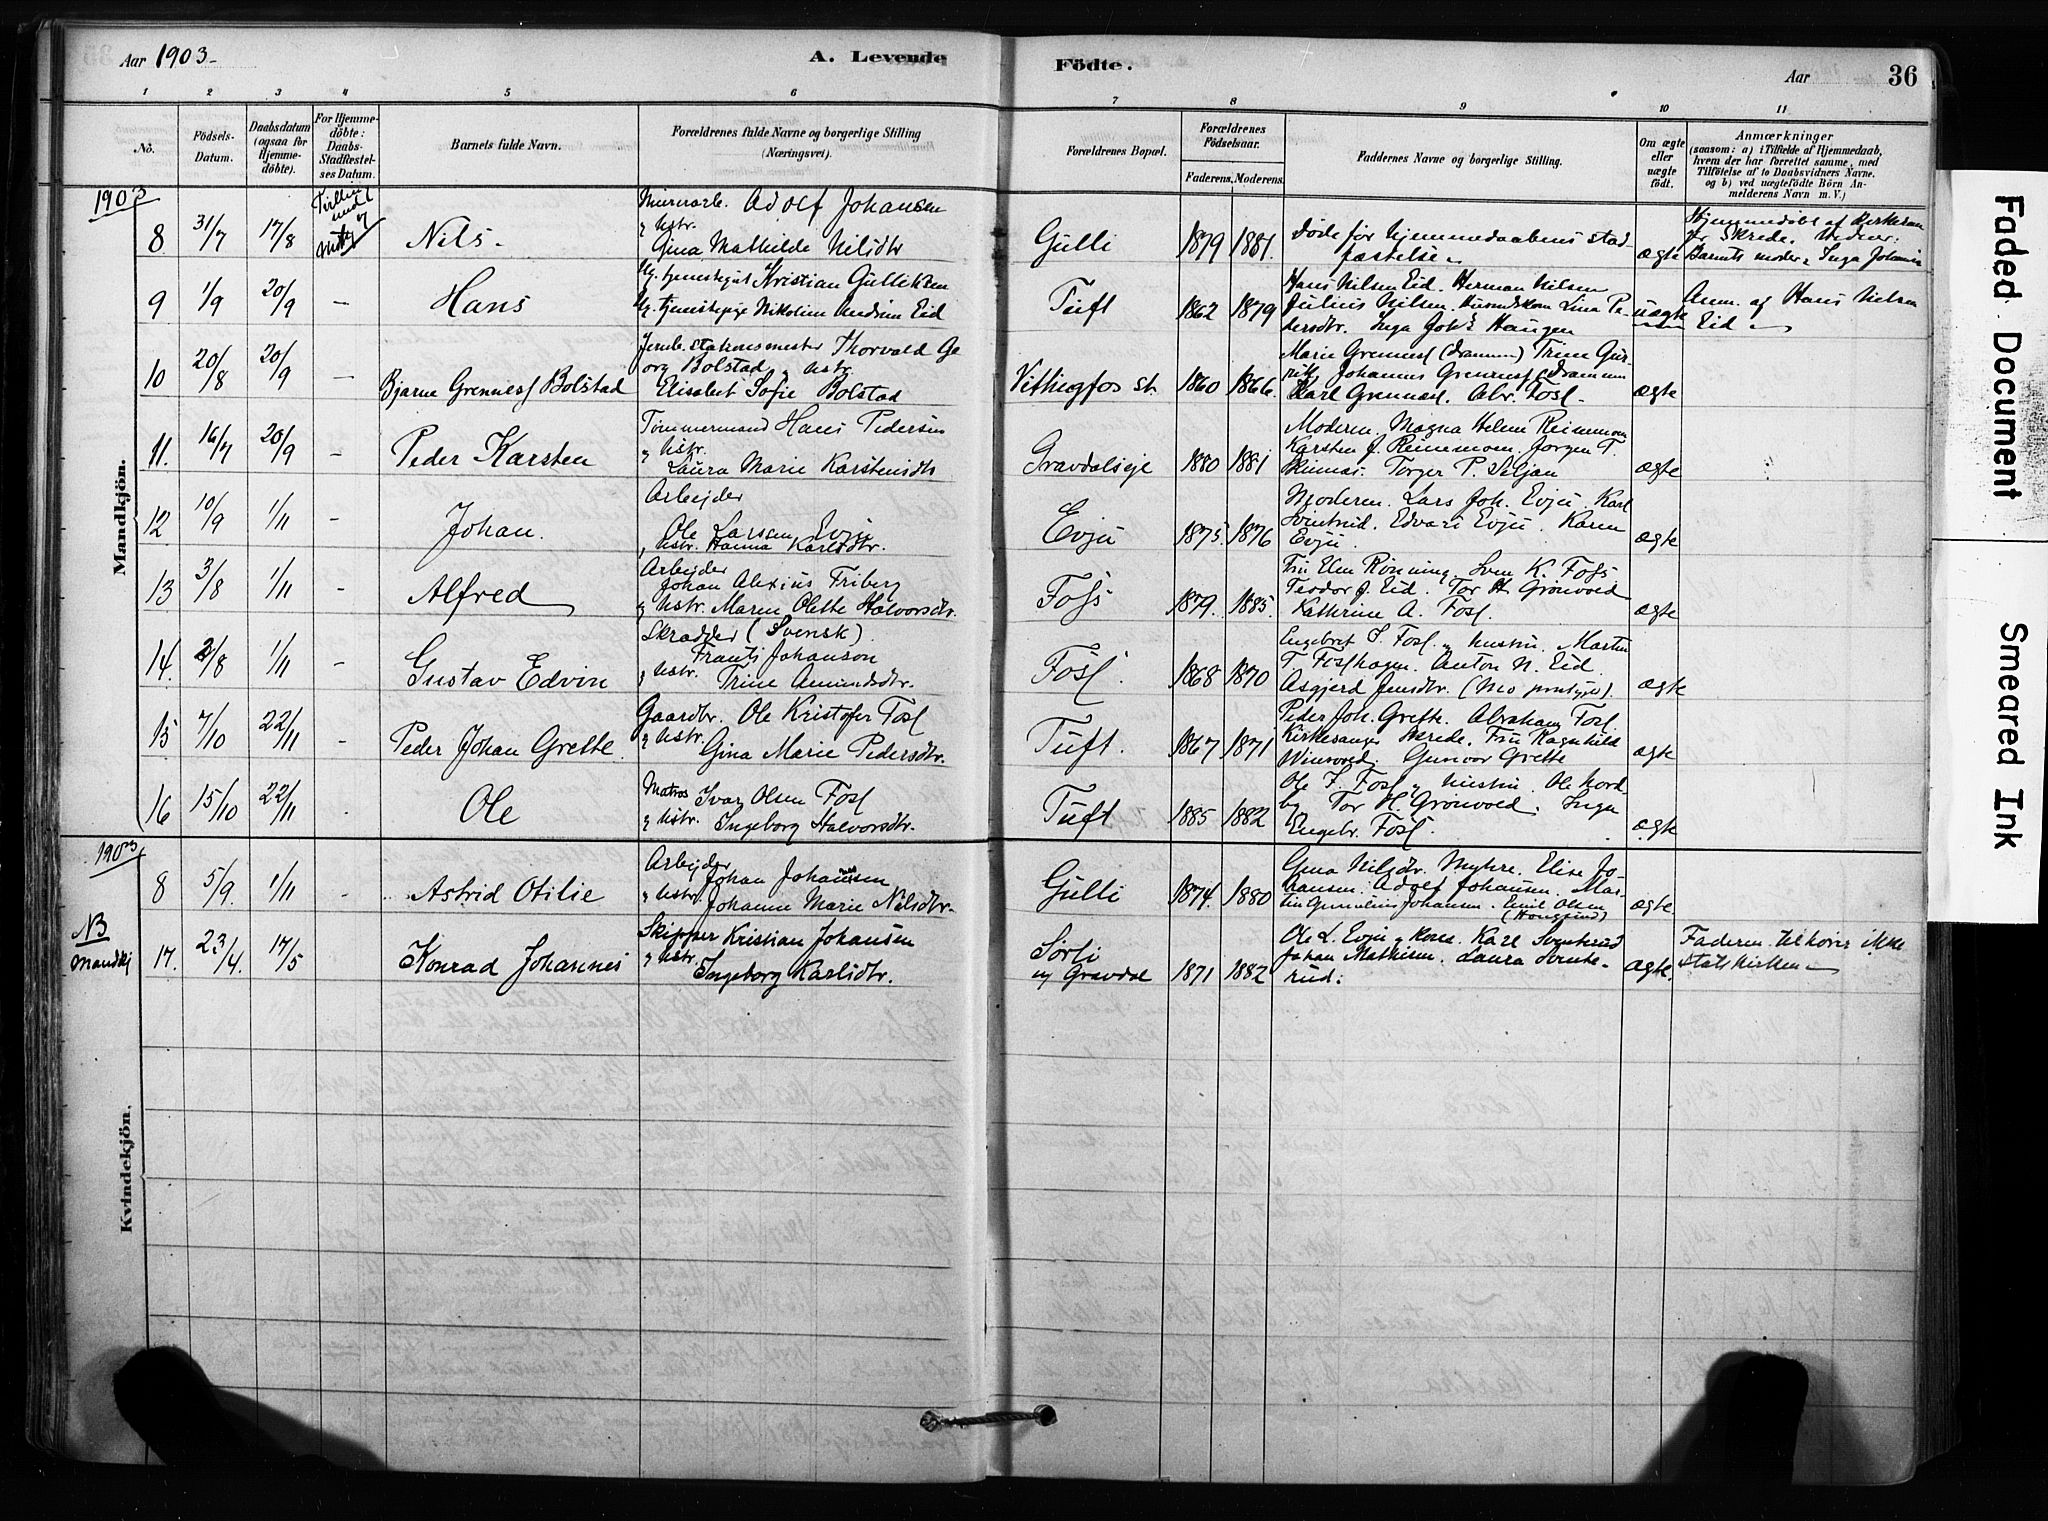 Aar 1903-
A. Levende
Födte.
Aar
36
1 2 3 4 5 6 7 8 9 10 11
No.
Födsels-
Datum.
Daabsdatum
(ogsaa for
Hjemme-
döbte).
For Hjemme-
döbte:
Daabs-
Stadfæstel-
ses Datum.
Barnets fulde Navn.
Forældrenes fulde Navne og borgerlige Stilling
(Næringsvei).
Forældrenes Bopæl.
Forældrenes
Födselsaar.
Faderens.
Moderens.
Faddernes Navne og borgerlige Stilling.
Om ægte
eller
uægte
födt.
Anmærkninger
(saasom: a) i Tilfælde af Hjemmedaab,
hvem der har forrettet samme, med
Tilföielse af to Daabsvidners Navne.
og b) ved uægtefödte Börn An-
melderens Navn m. V.)
Mandkjön.
1903
8 31/7 17/8
Nils.
Adolf Johansen
Gina Mathilde Nilsdtr
Gulli 1879 1881.
Døde før hjemmedaabens stad-
fæstelse
ægte
Hjemmedøbt af Kirkesan
ger Skrede. Vidner:
Barnets moder, Inga Johanne
9 1/9 20/9 —
Hans
Kristian Gulliksen
Eid
Tuft 1862 1879
Hans Nilsen Eid. Herman Nilsen
Julius Nilsen. Lina Pe-
dersdtr. Inga Joh. Haugen
uægte
Anm. af Hans Nilsen
Eid
10 20/8 20/9 —
Bjarne Grennes Bolstad
Jernb. stationsmester Thorvald Ge
org Bolstad & hstr.
Elisabet Sofie Bolstad
Vittingfos st. 1860 1866.
Karl Grennes. Abr. Fosl.
ægte
11. 16/7 20/9 -
Peder Karsten
Tømmermand Hans Pedersen
& hstr.
Laura Marie Karstensdtr
Gravdalseje 1880 1881
Moderen. Magna Helene Reinemoen
Karsten J. Reinemoen. Jørgen T.
Torger P. Seljan
ægte
12 10/9 1/11 -
Johan.
Arbejder
Ole Larssen Evju
& hstr. Hanna Karlsdtr.
Evju 1875. 1876
Moderen. Lars Joh. Evju. Karl
Sventrud. Edvart Evju. Karen
Evju.
ægte
13 3/8 1/11 -
Alfred
Arbejder
Johan Alexius Friberg
& hstr. Maren Olette Halvorsdtr.
Fofs 1879. 1885.
Fru Elen Rønning. Sven K. Fofs
Teodor J. Eid. Tor H. Grønvold
Kathrine A. Fosl.
ægte
14. 2/8 1/11 -
Gustav Edvin
Skrædder (Svensk).
Frants Johanson
& hstr. Trine Amundsdtr.
Fosl. 1868 1870
Engebret S. Fosl. & hustru. Marten
T. Foslhagen. Anton N. Eid
Asgjerd Jensdtr.
ægte
15 7/10 22/11 -
Peder Johan Grette
Gaardbr. Ole Kristofer Fosl
& hstr. Gina Marie Pedersdtr.
Tuft. 1867 1871
Peder Joh. Grette. Abraham Fosl
Kirkesanger Skrede. Fru Ragnhild
Gunvor Grette
ægte
16 15/10 22/11 .
Ole
Matros Ivar Olsen Fosl
& hstr. Ingeborg Halvorsdtr.
Tuft 1885 1882
Ole I. Fosl & hustru. Ole Nord-
by Tor H. Grønvold. Inger
Engebr. Fosl.
ægte
1903
8 5/9. 1/11 -
Astrid Otilie
Arbejder
Johan Johansen
& hstr. Johanne Marie Nilsdtr.
Gulli 1874. 1880
Gina Nilsdtr. Myhre. Elise Jo-
hansen. Adolf Johansen. Mar-
tin Johansen. Emil Olsen
(Haugsund)
ægte.
NB
Mandkj
17. 23/4. 17/5
Konrad Johannes
Skipper Kristian Johansen
& hstr. Ingeborg Karlsdtr.
Sørli
u/ Gravdal 1871 1882
Ole L. Evju & kone. Karl Sventrud
Johan Mathisen. Laura Svente-
rud.
ægte.
Faderen tilhører ikke
statskirken
Kvindekjön.
Faded Document
Smeared Ink